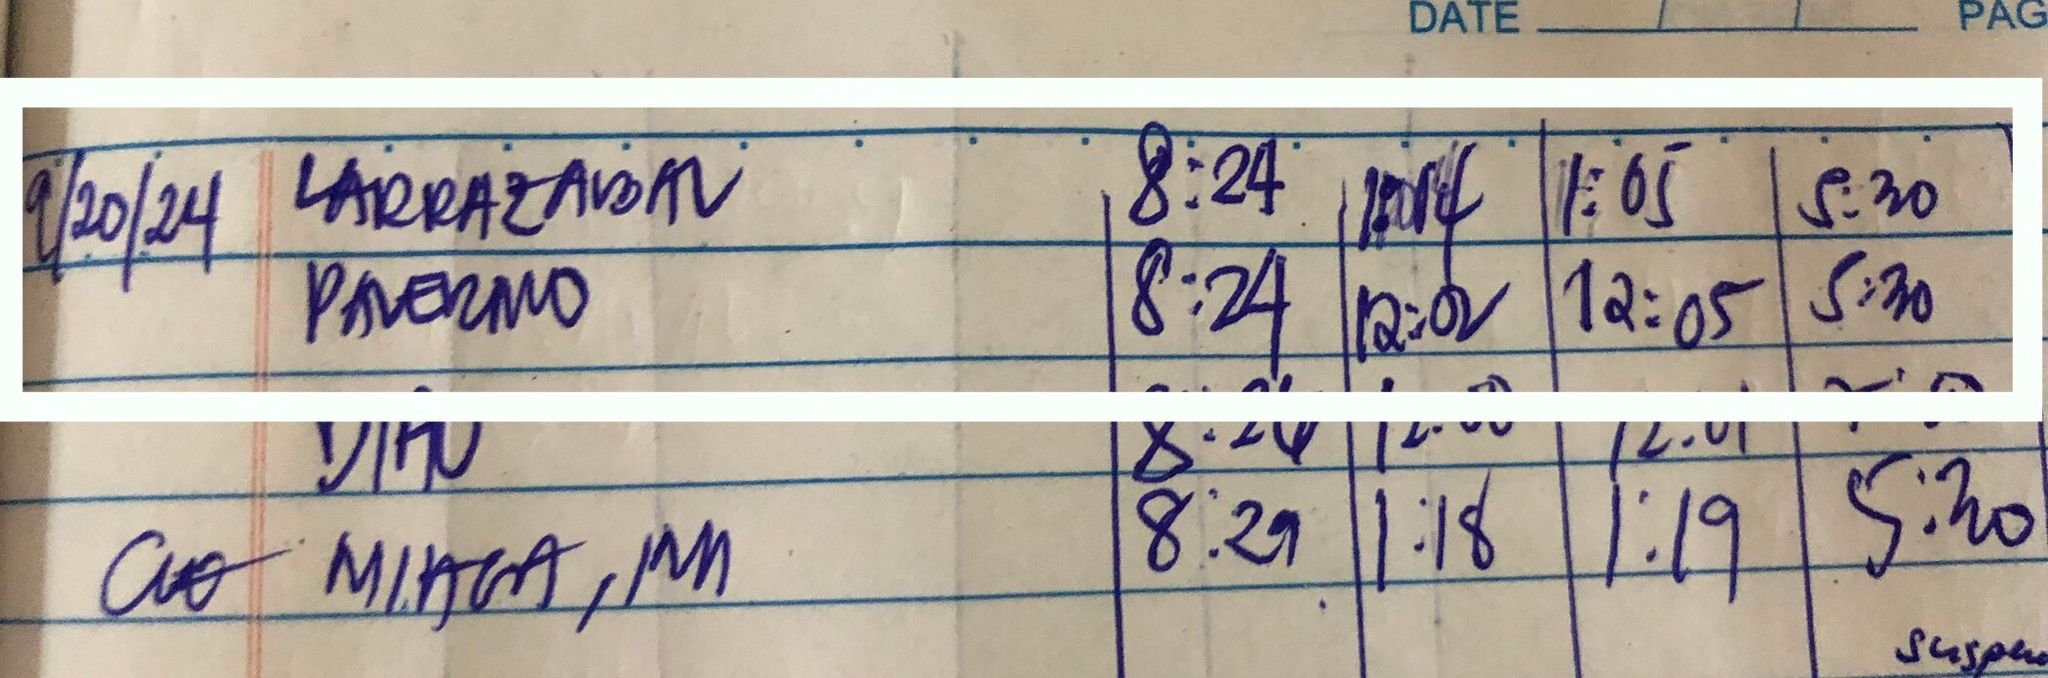 DATE / / PAG
9/20/24 LARRAZABAL 8:24 1:04 1:05 5:30
PALERMO 8:24 12:02 12:05 5:30
DIAN 8:26 12:00 12:01
MIAGA, MA 8:29 1:18 1:19 5:30